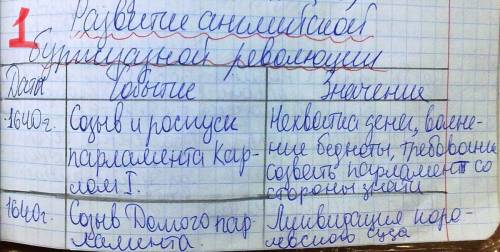 1 Развитие английской
буржуазной революции
Даты Событие Значение
1640г. Созыв и роспуск
парламента Кар-
лом I.
Нехватка денег, волне-
ние бедноты, требование
созвать парламент со
стороны знати
1640г. Созыв Долгого пар-
ламента.
Ликвидация коро-
левского суда